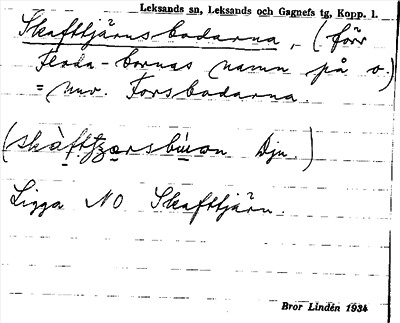 Leksands sn, Leksands och Gagnefs tg, Kopp. l.
Skafttjärnsbodarna, (förr
Floda-bornas namn på o.)
= nuv. Forsbodarna.
Dju.)
Ligga NO Skafttjärn.
Bror Lindén 1934